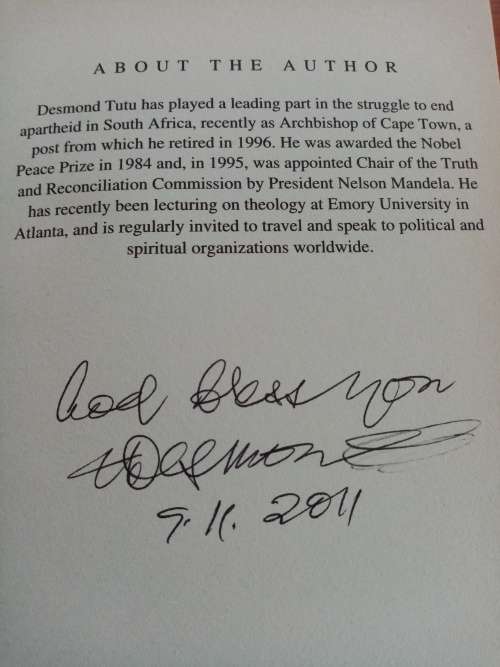 ABOUT THE AUTHOR
Desmond Tutu has played a leading part in the struggle to end
apartheid in South Africa, recently as Archbishop of Cape Town, a
post from which he retired in 1996. He was awarded the Nobel
Peace Prize in 1984 and, in 1995, was appointed Chair of the Truth
and Reconciliation Commission by President Nelson Mandela. He
has recently been lecturing on theology at Emory University in
Atlanta, and is regularly invited to travel and speak to political and
spiritual organizations worldwide.
God bless you
+Desmond
9.11.2011